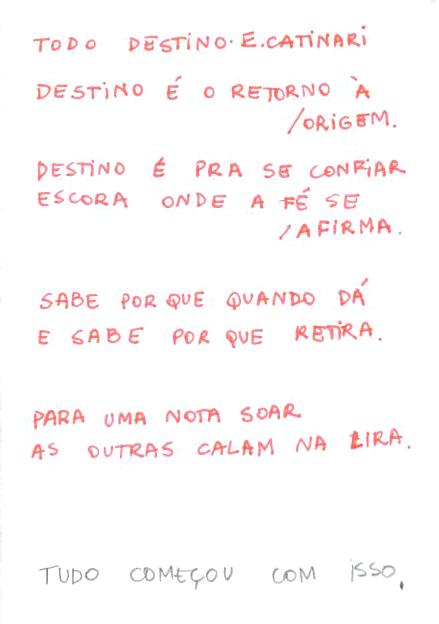 TODO DESTINO. E. CATINARI
DESTINO É O RETORNO À
/ORIGEM.
DESTINO É PRA SE CONFIAR
ESCORA ONDE A FÉ SE
/AFIRMA.
SABE POR QUE QUANDO DÁ
E SABE POR QUE RETIRA.
PARA UMA NOTA SOAR
AS OUTRAS CALAM NA LIRA.
TUDO COMEÇOU COM ISSO.